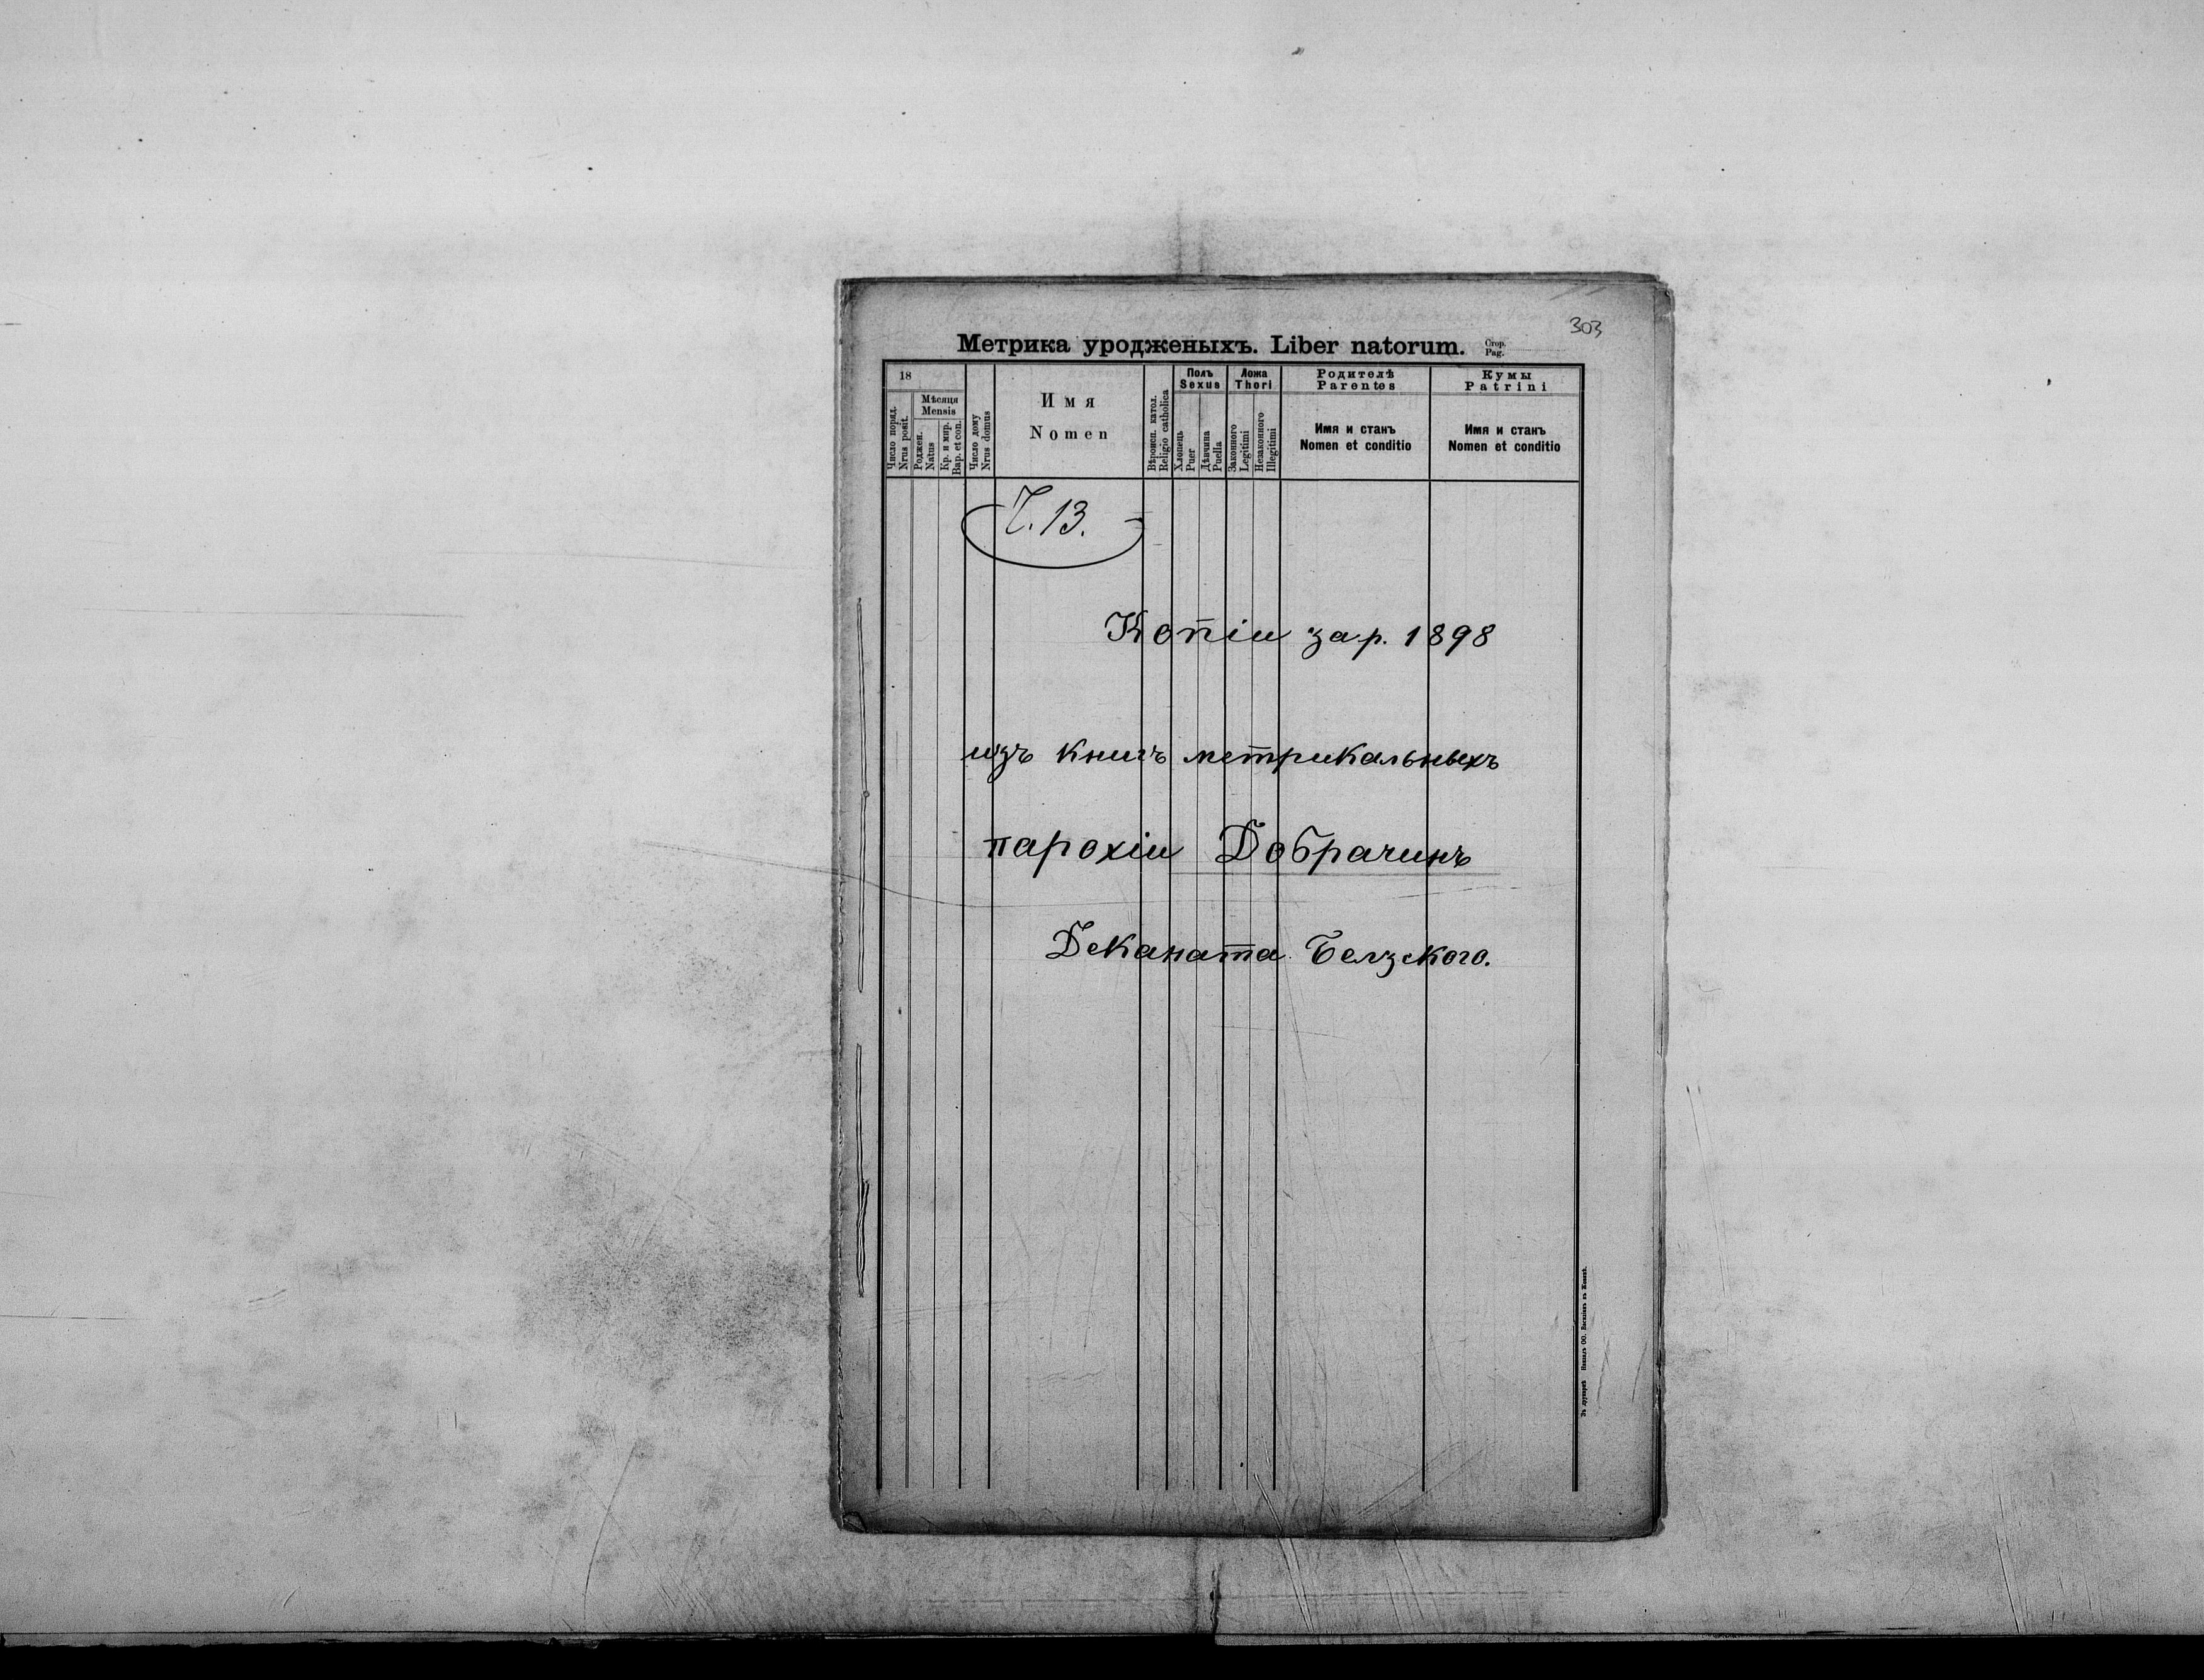 303
Метрика уродженыхъ. Liber natorum. Стор. Pag.
18
Число поряд. Nrus posit.
Мѣсяця Mensis
Роджен. Natus
Кр. и мир. Bap. et con.
Число дому Nrus domus
Имя Nomen
Вѣроисп. катол. Religio catholica
Полъ Sexus
Хлопець Puer
Дѣвчина Puella
Ложа Thori
Законного Legitimi
Незаконного Illegitimi
Родителѣ Parentes
Имя и станъ Nomen et conditio
Кумы Patrini
Имя и станъ Nomen et conditio
Ч. 13.
Копіи за р. 1898
изъ книгъ метрикальныхъ
парохіи Добрачинъ
Деканата Белзского.